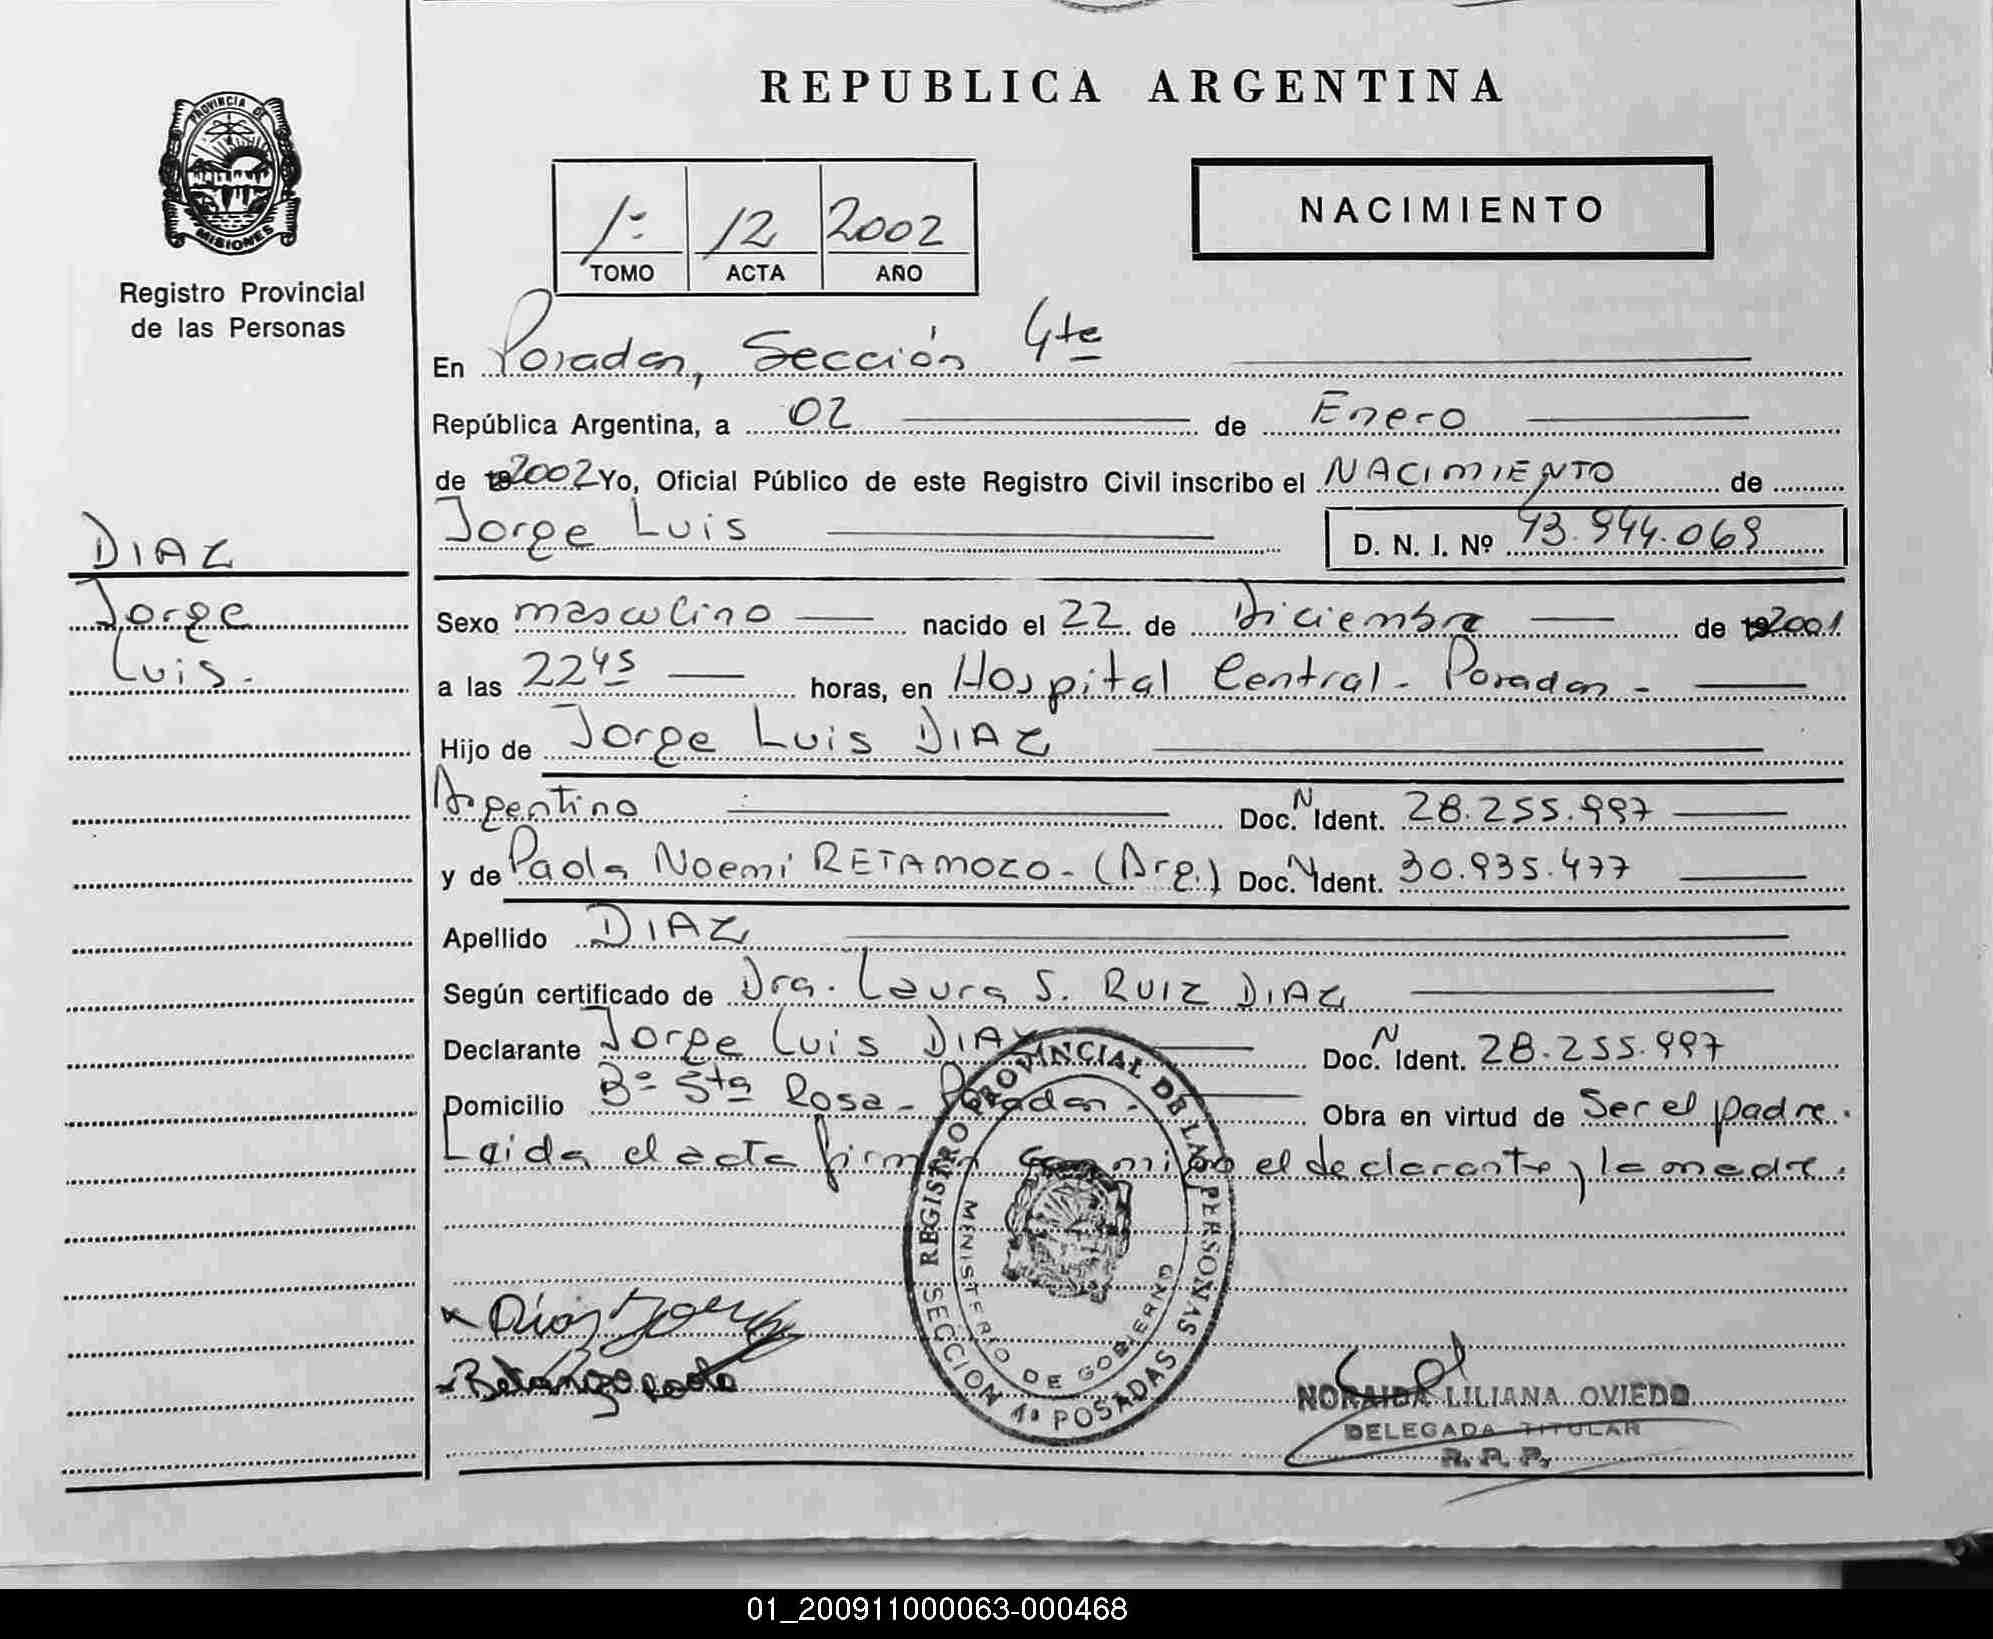 REPUBLICA ARGENTINA
PROVINCIA DE
MISIONES
Registro Provincial
de las Personas
1º 12 2002
TOMO ACTA AÑO
NACIMIENTO
En Posadas, Sección 4ta
República Argentina, a 02 de Enero
de 192002 Yo, Oficial Público de este Registro Civil inscribo el NACIMIENTO de
Jorge Luis D. N. I. Nº 43.944.069
DIAZ
Jorge
Luis.
Sexo masculino nacido el 22 de Diciembre de 192001
a las 22 45 horas, en Hospital Central - Posadas -
Hijo de Jorge Luis DIAZ
Argentino Doc. N Ident. 28.255.997
y de Paola Noemi RETAMOZO - (Arg.) Doc. N Ident. 30.935.477
Apellido DIAZ
Según certificado de Dra. Laura S. RUIZ DIAZ
Declarante Jorge Luis DIAZ Doc. N Ident. 28.255.997
Domicilio Bº Sta Rosa - Posadas - Obra en virtud de Ser el padre.
Leida el acta firman conmigo el declarante y la madre.
REGISTRO PROVINCIAL DE LAS PERSONAS
MINISTERIO DE GOBIERNO
SECCION 4ª POSADAS
Díaz Jorge
NORAIDA LILIANA OVIEDO
DELEGADA TITULAR
R. P. P.
01_200911000063-000468